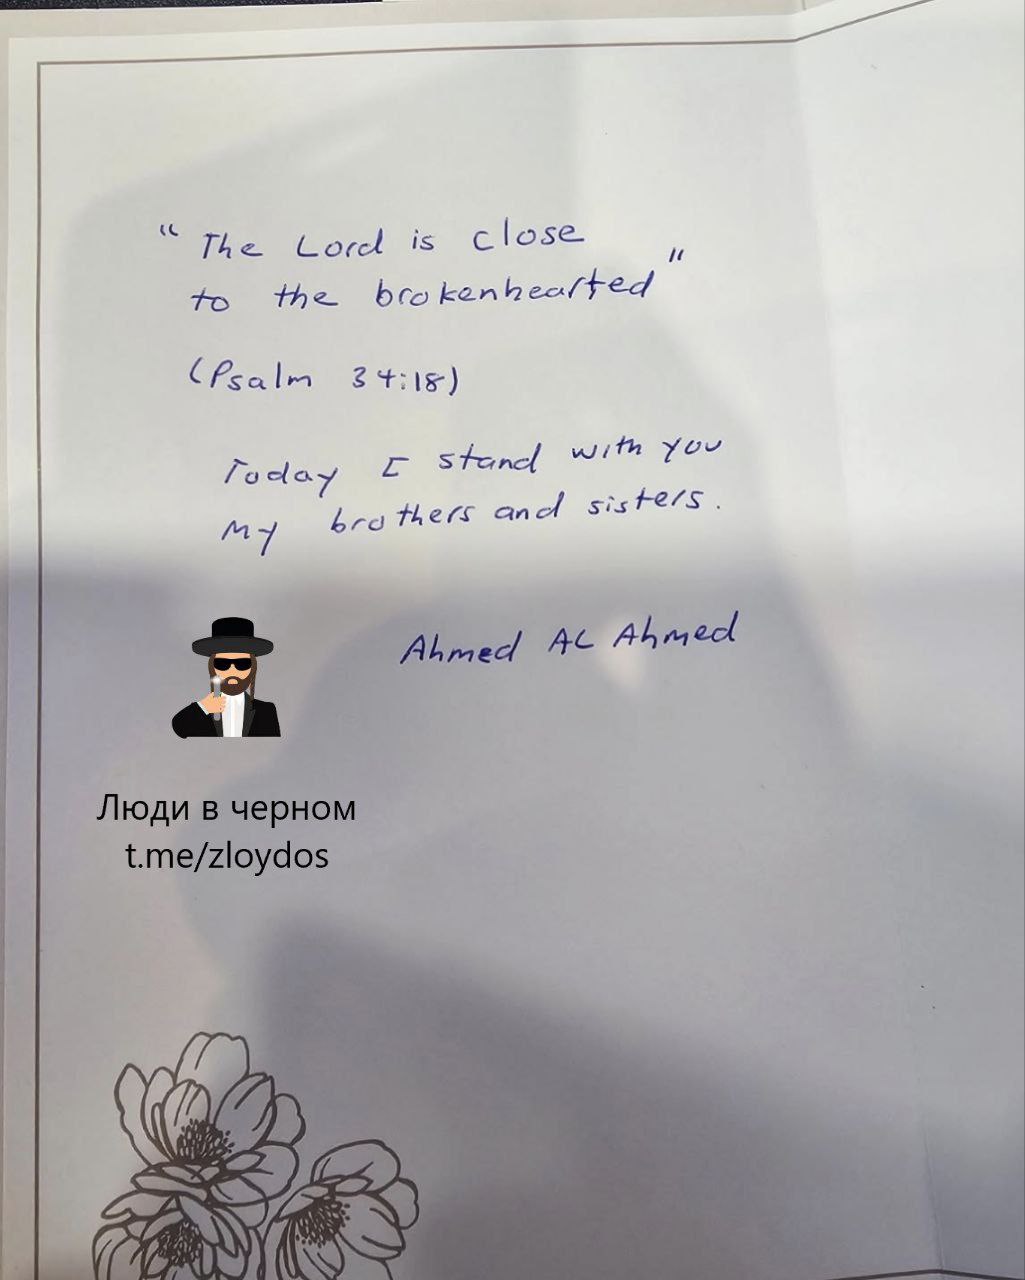 “The Lord is close
to the brokenhearted”
(Psalm 34:18)
Today I stand with you
my brothers and sisters.
Ahmed AL Ahmed
Люди в черном
t.me/zloydos